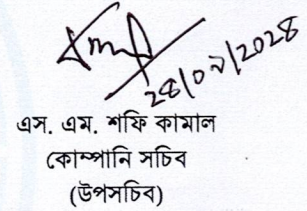 ২৪/০৭/২০২৪
এস. এম. শফি কামাল
কোম্পানি সচিব
(উপসচিব)